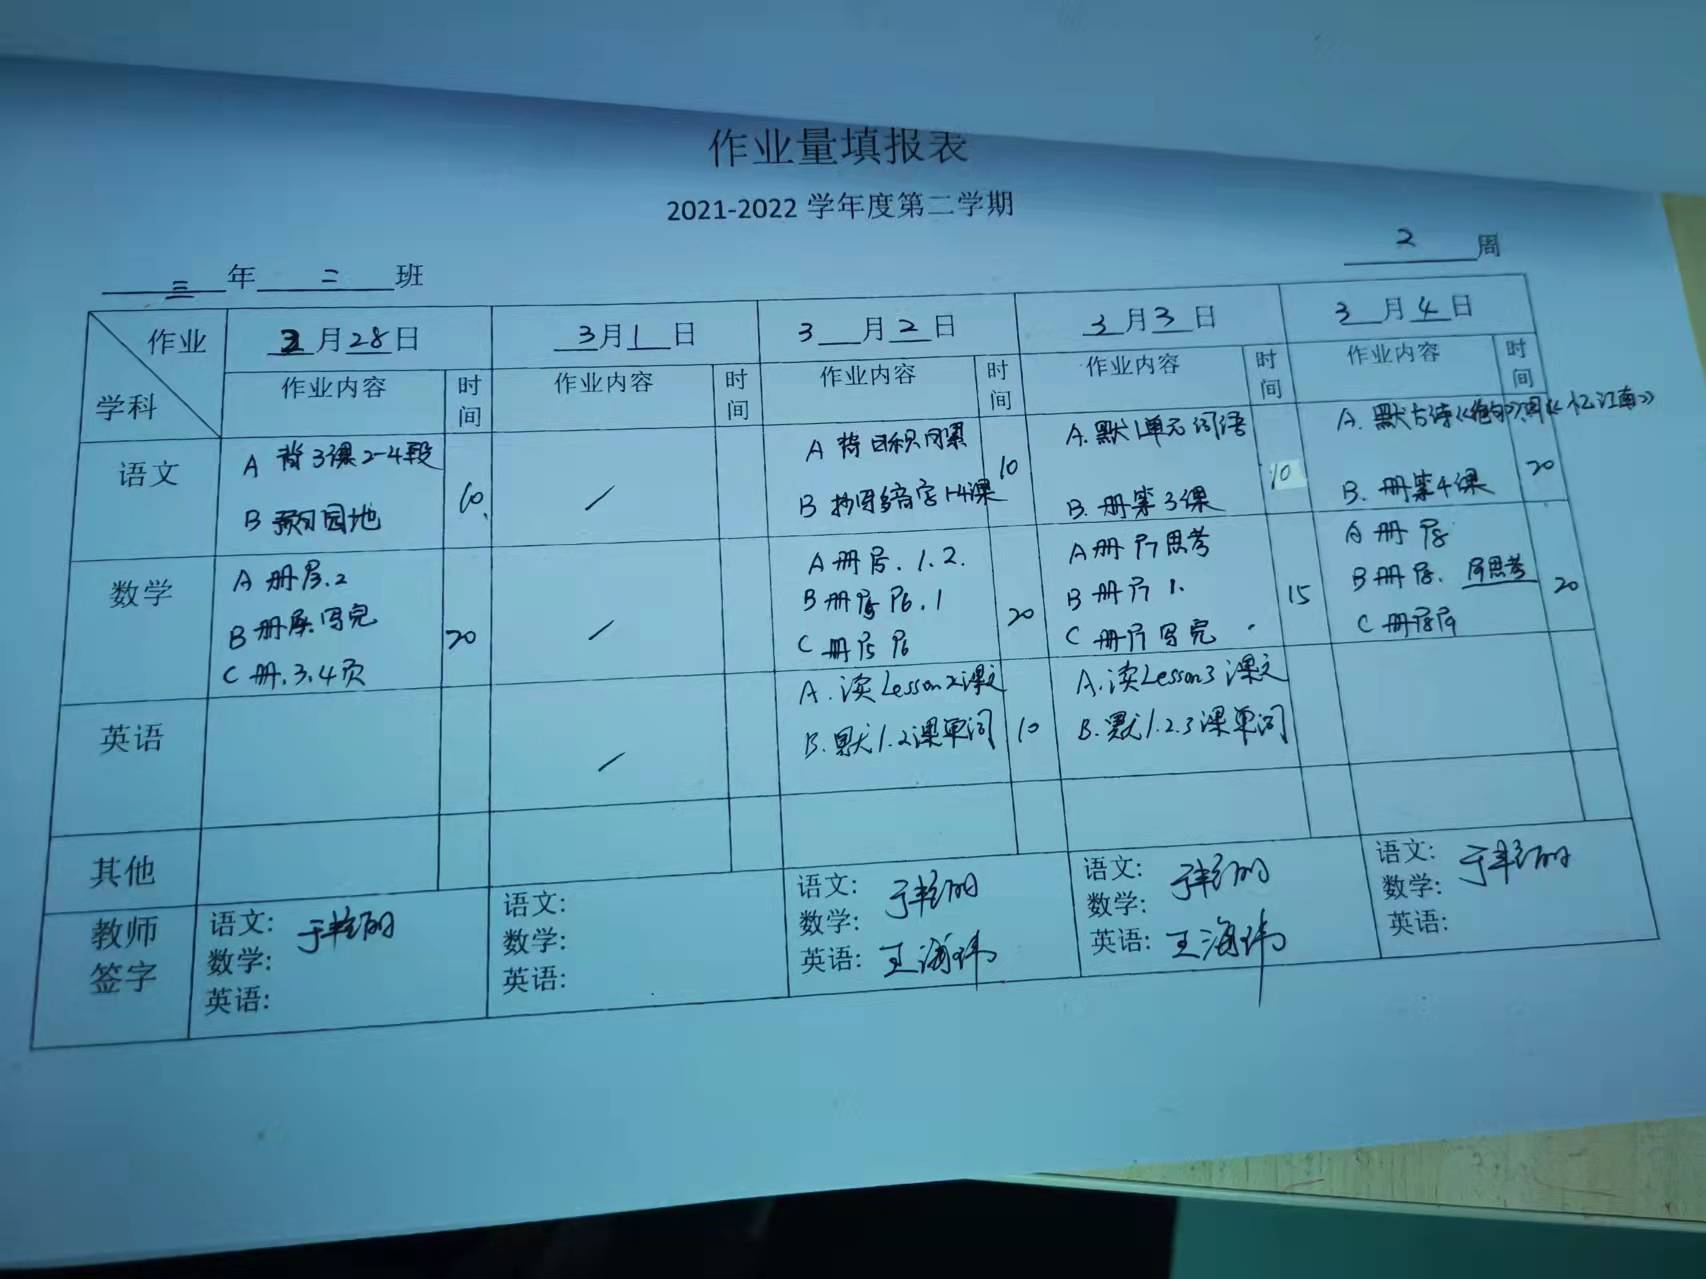 作业量填报表
2021-2022 学年度第二学期
三 年 二 班
2 周
作业
学科
2月28日
3月1日
3月2日
3月3日
3月4日
作业内容 时间
作业内容 时间
作业内容 时间
作业内容 时间
作业内容 时间
语文
A 背3课2-4段
B 预习园地
10
/
A 背日积月累
B 抄写多音字1-4课
10
A. 默1单元词语
B. 册第3课
10
A. 默古诗《绝句》《忆江南》
B. 册第4课
20
数学
A 册 P3.2
B 册 写完
C 册.3.4页
20
/
A 册 P5.1.2.
B 册 P5 P6.1
C 册 P5 P6
20
A 册 P7 思考
B 册 P7 1.
C 册 P7 写完
15
A 册 P8
B 册 P8. P9思考
C 册 P8 P9
20
英语
/
A. 读Lesson2课文
B. 默1.2课单词
10
A. 读Lesson3课文
B. 默1.2.3课单词
其他
教师
签字
语文: 于
数学:
英语:
语文:
数学:
英语:
语文: 于
数学:
英语: 王海玮
语文: 于
数学:
英语: 王海玮
语文: 于
数学:
英语: